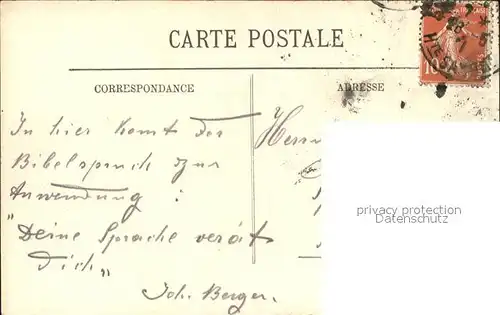 CARTE POSTALE
CORRESPONDANCE
ADRESSE
In hier komt der
Bibelspruch zur
Anwendung :
"Deine Sprache verät
Dich"
Joh. Berger.
Herrn
privacy protection
Datenschutz
10